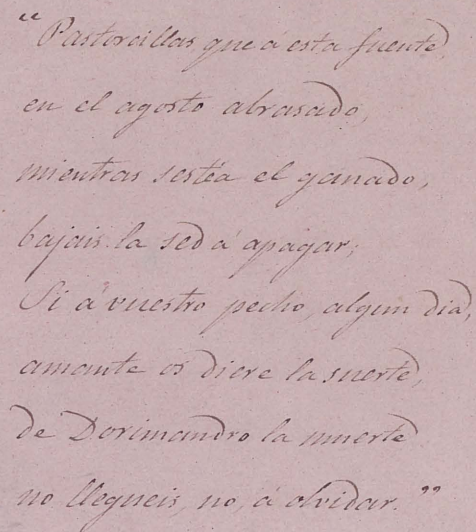 “Pastorcillas que á esta fuente,
en el agosto abrasado,
mientras sestéa el ganado,
bajais la sed á apagar;
Si á vuestro pecho, algun dia,
amante os diere la suerte,
de Dorimandro la muerte
no llegueis, no, á olvidar.”